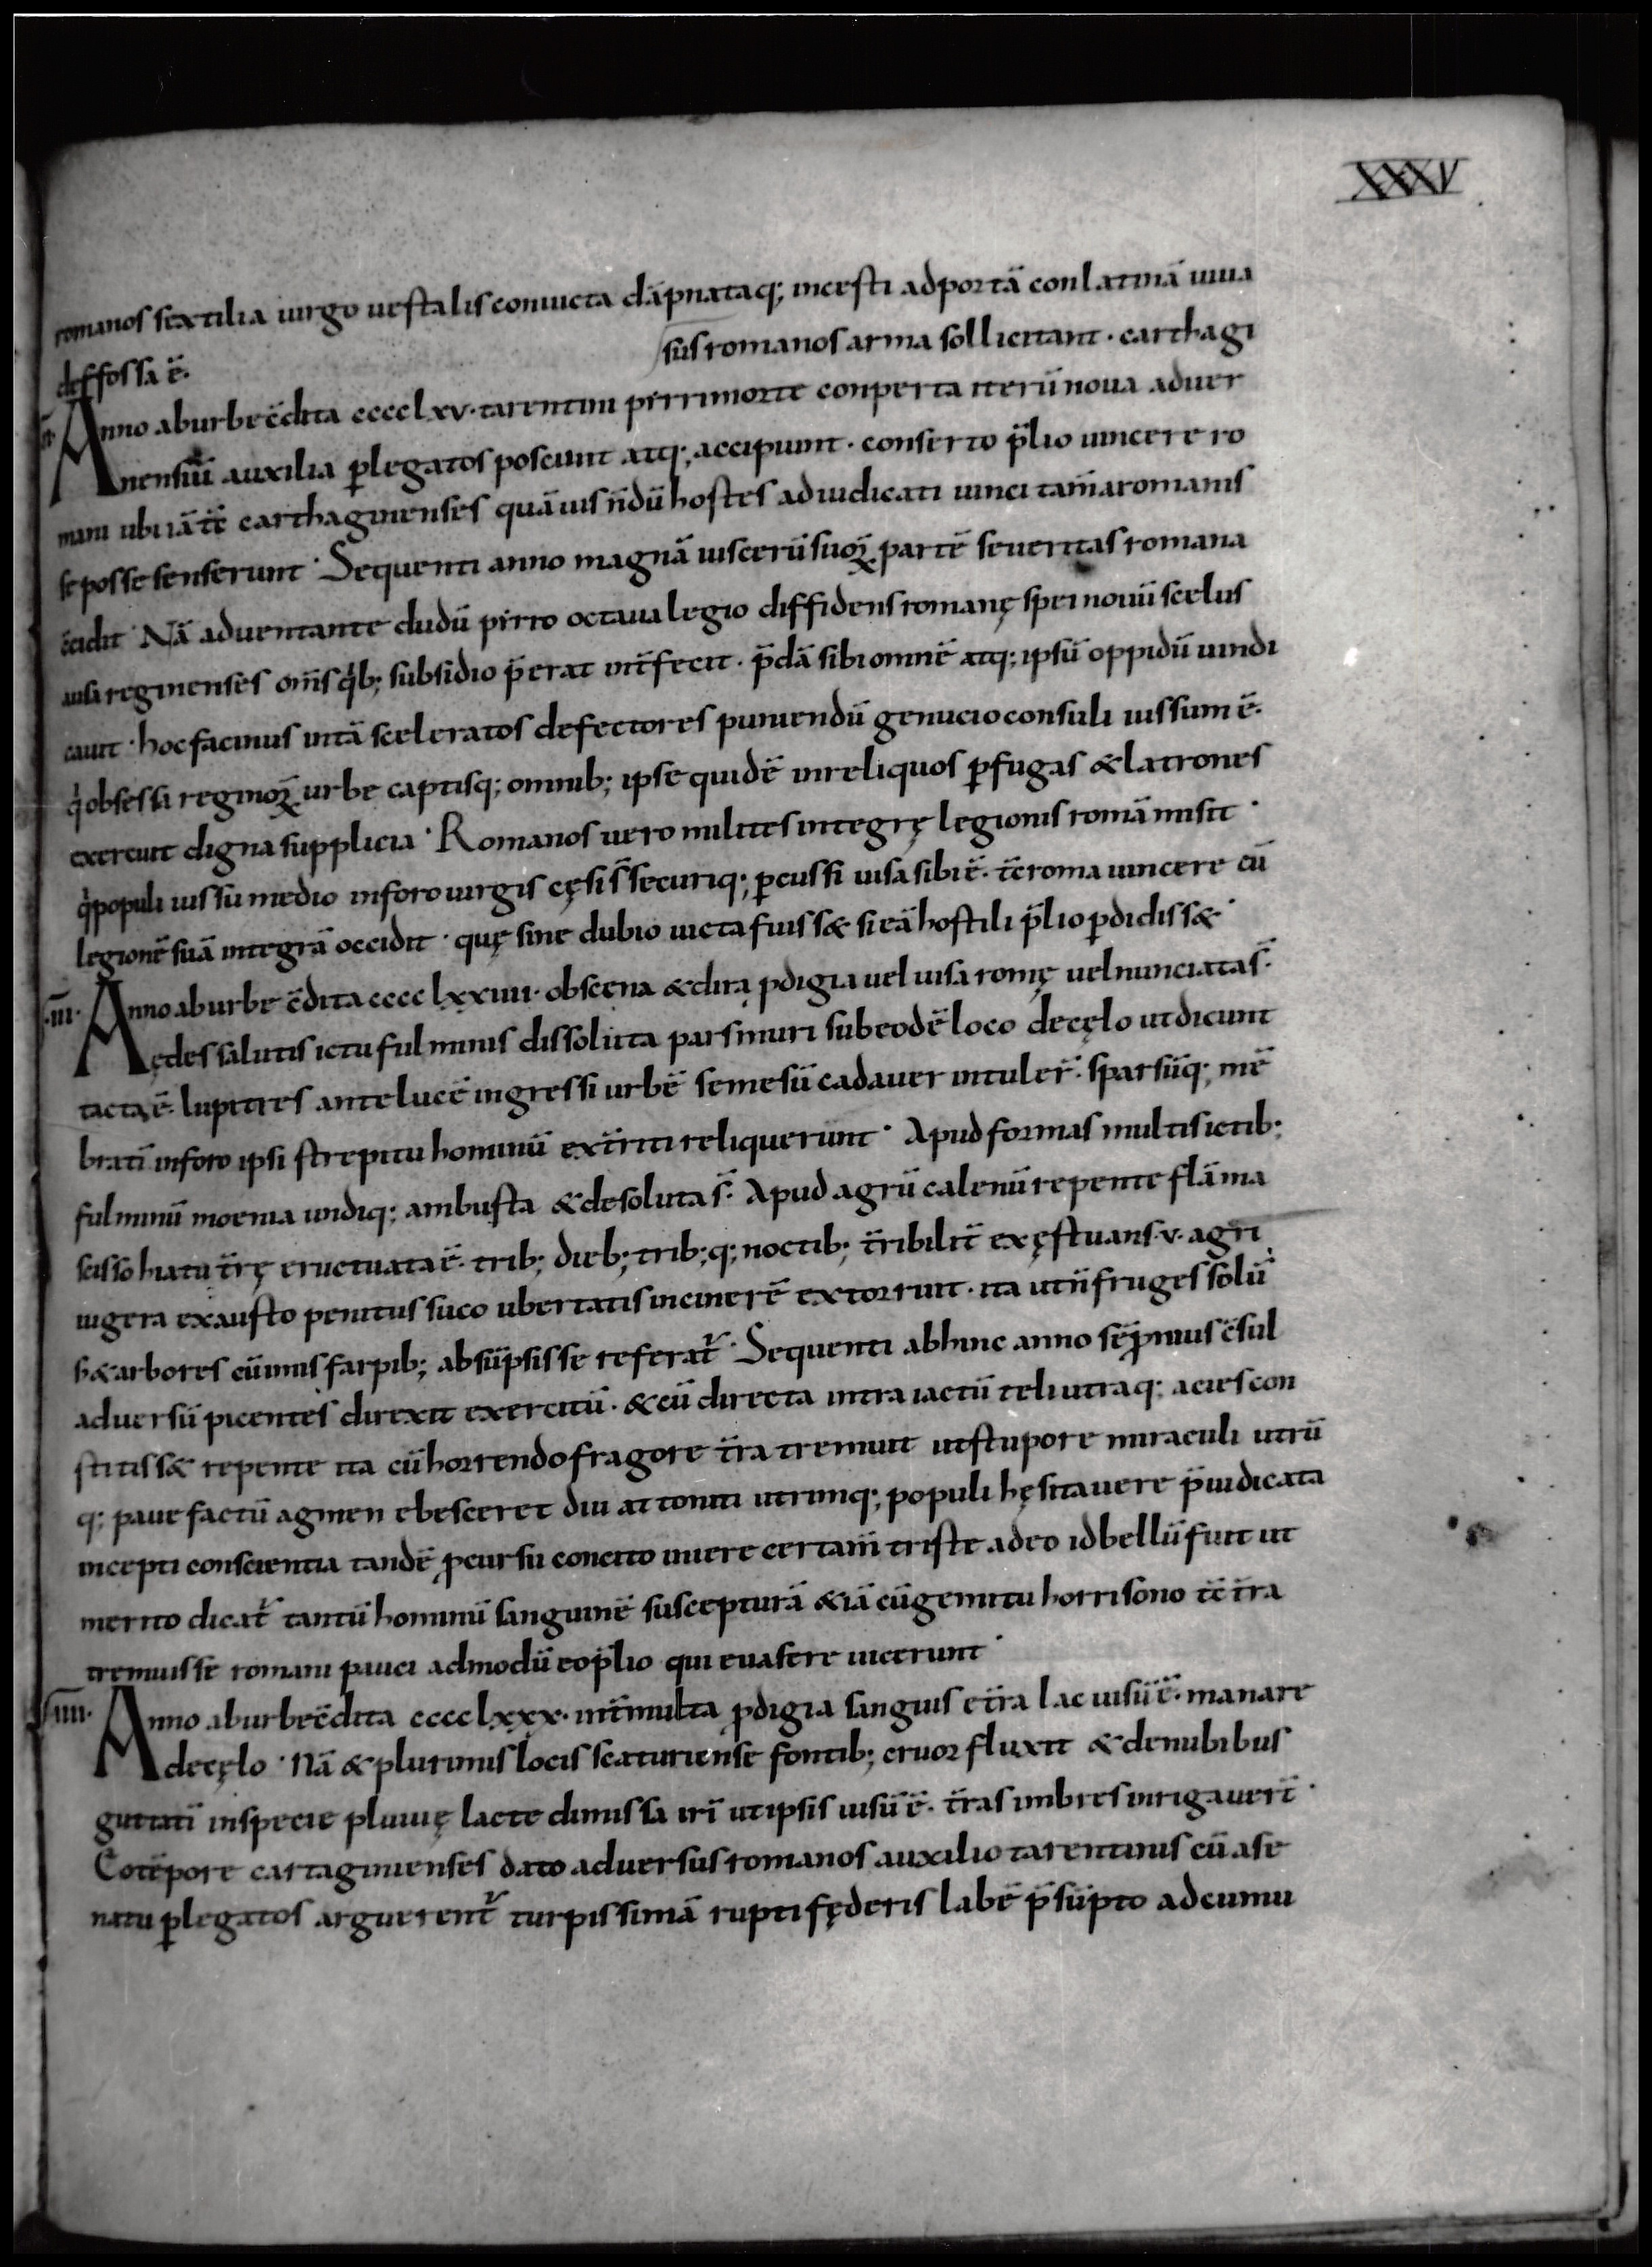 XXXV
romanos sextilia uirgo uestalis conuicta dãpnataq; incesti adportã conlatinã uiua
deffossa ẽ.
sus romanos arma sollicitant · carthagi
Anno aburbe c̃dita cccclxv · tarentini pirri morte conperta iterũ noua aduer
nensiũ auxilia p̱legatos poscunt atq; accipiunt · conserto p̃lio uincere ro
mani ubi iã tc̃ carthaginenses quãuis ñdũ hostes adiudicati uinci tam̃ aromanis
se posse senserunt · Sequenti anno magnã uiscerũ suoꝝ partẽ seueritas romana
c̃cidit · Nã aduentante dudũ pirro octaua legio diffidens romanę spei nouũ scelus
ausa reginenses om̃s qͥb; subsidio p̃erat int̃fecit · p̃dã sibi omnẽ atq; ipsũ oppidũ uindi
cauit · hoc facinus intã sceleratos defectores puniendũ genucio consuli iussum ẽ.
qͥ obsessa reginoꝝ urbe captisq; omnib; ipse quidẽ inreliquos ꝑfugas & latrones
exercuit digna supplicia · Romanos uero milites integrę legionis romã misit ·
qͥ populi iussu medio inforo uirgis cęsi s̃ securiq; ꝑcussi uisa sibi ẽ. tc̃ roma uincere cũ
legionẽ suã integrã occidit · quę sine dubio uicta fuiss& si eã hostili p̃lio ꝑdidiss& ·
.III. Anno aburbe c̃dita cccclxxiiii · obscena & dira ꝓdigia uel uisa romę uel nunciata s̃.
Aedes salutis ictu fulminis dissoluta pars muri sub eodẽ loco decęlo ut dicunt
tacta ẽ. lupi tres ante lucẽ ingressi urbẽ semesũ cadauer intuler̃. sparsũq; mẽ
bratĩ inforo ipsi strepitu hominũ ext̃riti reliquerunt · Apud formas multis ictib;
fulminũ moenia undiq; ambusta & desoluta s̃. Apud agrũ calenũ repente flãma
scisso hiatu t̃rę eructuata ẽ. trib; dieb; trib;q; noctib; t̃ribilit̃ exęstuans · v · agri
iugera exausto penitus suco ubertatis incinerẽ extorruit · ita ut ñ fruges solũ
s& arbores cũ imis farpib; absũpsisse referat᷑ · Sequenti abhinc anno sẽpnius c̃sul
aduersũ picentes direxit exercitũ · & cũ directa intra iactũ teli utraq; acies con
stitiss& repente ita cũ horrendo fragore t̃ra tremuit ut stupore miraculi utrũ
q; pauefactũ agmen ebesceret diu attoniti utrinq; populi hęsitauere p̃iudicata
incepti conscientia tandẽ ꝓcursu concito iniere certam̃ triste adeo id bellũ fuit ut
merito dicat᷑ tantũ hominũ sanguinẽ susceptura͂ & iã cũ gemitu horrisono tc̃ t̃ra
tremuisse romani pauci admodũ eo p̃lio qui euasere uicerunt ·
.IIII. Anno aburbe c̃dita cccclxxx · int̃ multa ꝓdigia sanguis e t̃ra lac uisũ ẽ. manare
decęlo · Nã & plurimis locis scaturiense fontib; cruor fluxit & denubibus
guttatĩ inspecie pluuię lacte dimissa irĩ ut ipsis uisũ ẽ. t̃ras imbres inrigauer̃t ·
Eo tẽpore cartaginienses dato aduersus romanos auxilio tarentinis cũ ase
natu p̱legatos arguerent᷑ turpissimã rupti fęderis labẽ p̃sũpto adcumu